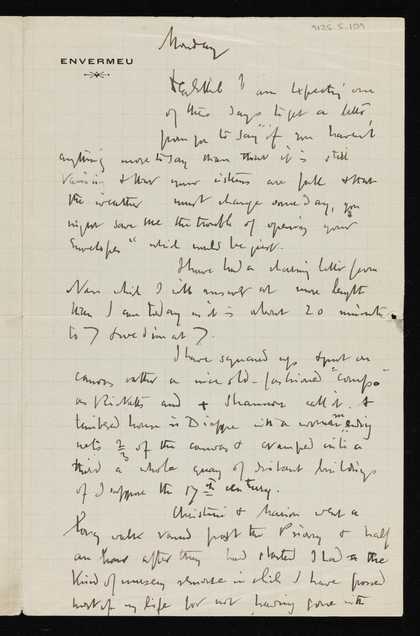 9125.5.109
Monday
ENVERMEU
I am expecting one
of these days to get a letter
from you to say "if you haven't
anything more to say than that it is still
raining & that your cisterns are full & that
the weather must change some day, you
might save me the trouble of opening your
envelopes" which would be just.
I have had a charming letter from
Nan which I will answer at more length
than I am today as it is about 20 minutes
to 7 & we dine at 7.
I have squared up & put on
canvas rather a nice old-fashioned "compo"
as Ricketts and Shannon call it. A
timbered house in Dieppe with a woman mending
nets 2/3 of the canvas & cramped into a
third a whole quay of distant buildings
of I suppose the 17th century.
Christine & Marion went a
long walk round past the Priory & half
an hour after they had started I had the
kind of remorse in which I have passed
most of my life for not having gone with